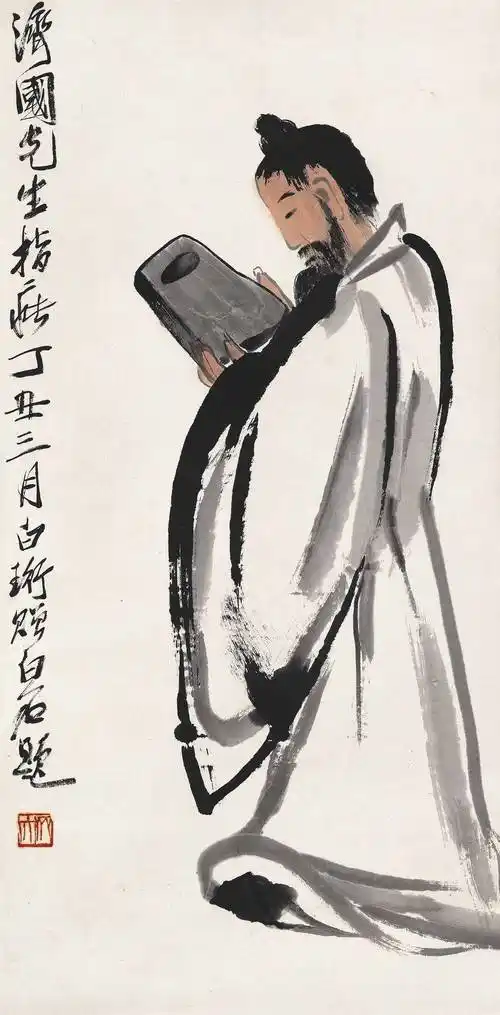 濟國先生指疵丁丑三月白珩贈白石題